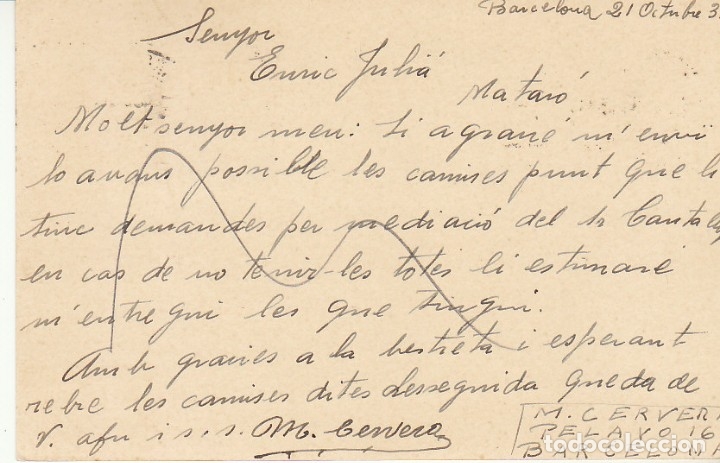 Barcelona 21 Octubre 3
Senyor
Enric Juliá
Mataró
Molt senyor meu: Li agrairé m'envi
lo avans possible les camises punt que li
tinc demandes per mediació del Sr Cantal
en cas de no tenir-les totes li estimaré
m'entregui les que tingui.
Amb gracies a la bestreta i esperant
rebre les camises dites desseguida queda de
V. afm i s.s. M. Cervera
M. CERVERA
PELAYO 16
BARCELONA
todocoleccion